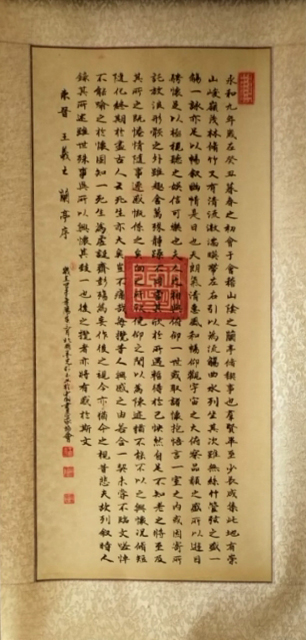 永和九年歲在癸丑暮春之初會于會稽山陰之蘭亭脩禊事也羣賢畢至少長咸集此地有崇
山峻嶺茂林脩竹又有清流激湍暎帶左右引以為流觴曲水列坐其次雖無絲竹管弦之盛一
觴一詠亦足以暢敘幽情是日也天朗氣清惠風和暢仰觀宇宙之大俯察品類之盛所以遊目
騁懷足以極視聽之娛信可樂也夫人之相與俯仰一世或取諸懷抱悟言一室之內或因寄所
託放浪形骸之外雖趣舍萬殊靜躁不同當其欣於所遇暫得於己快然自足不知老之將至及
其所之既惓情隨事遷感慨係之矣向之所欣俛仰之間以為陳迹猶不能不以之興懷況脩短
隨化終期於盡古人云死生亦大矣豈不痛哉每攬昔人興感之由若合一契未嘗不臨文嗟悼
不能喻之於懷固知一死生為虛誕齊彭殤為妄作後之視今亦猶今之視昔悲夫故列敘時人
錄其所述雖世殊事異所以興懷其致一也後之攬者亦將有感於斯文
東晉 王羲之 蘭亭序